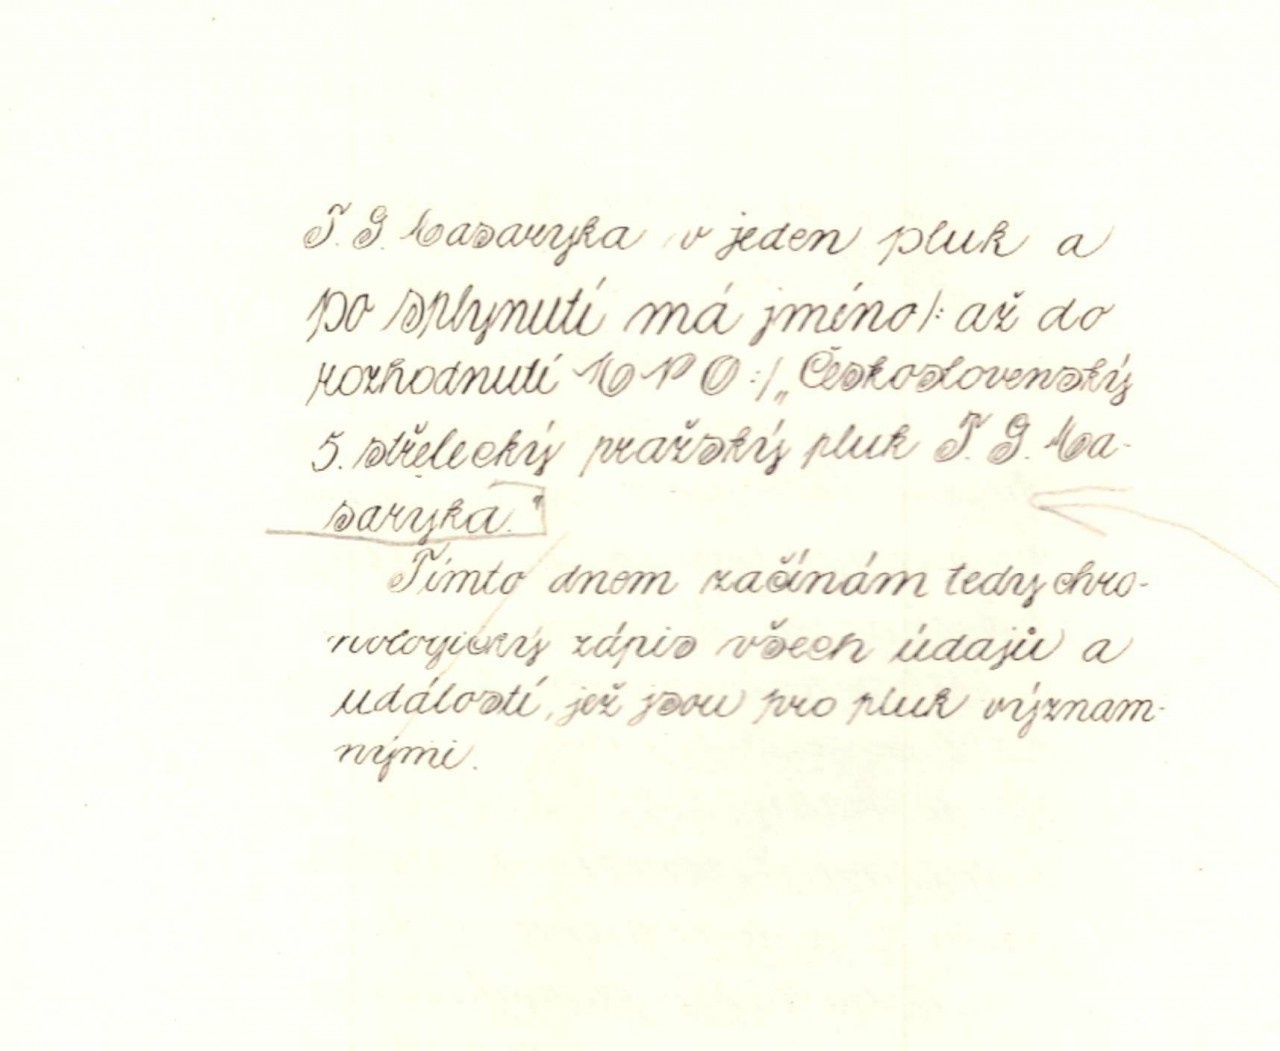 T. G. Masaryka v jeden pluk a
po splynutí má jméno /: až do
rozhodnutí MNO :/ „Československý
5. střelecký pražský pluk T. G. Ma-
saryka."
Tímto dnem začínám tedy chro-
nologický zápis všech údajů a
událostí, jež jsou pro pluk význam-
nými.